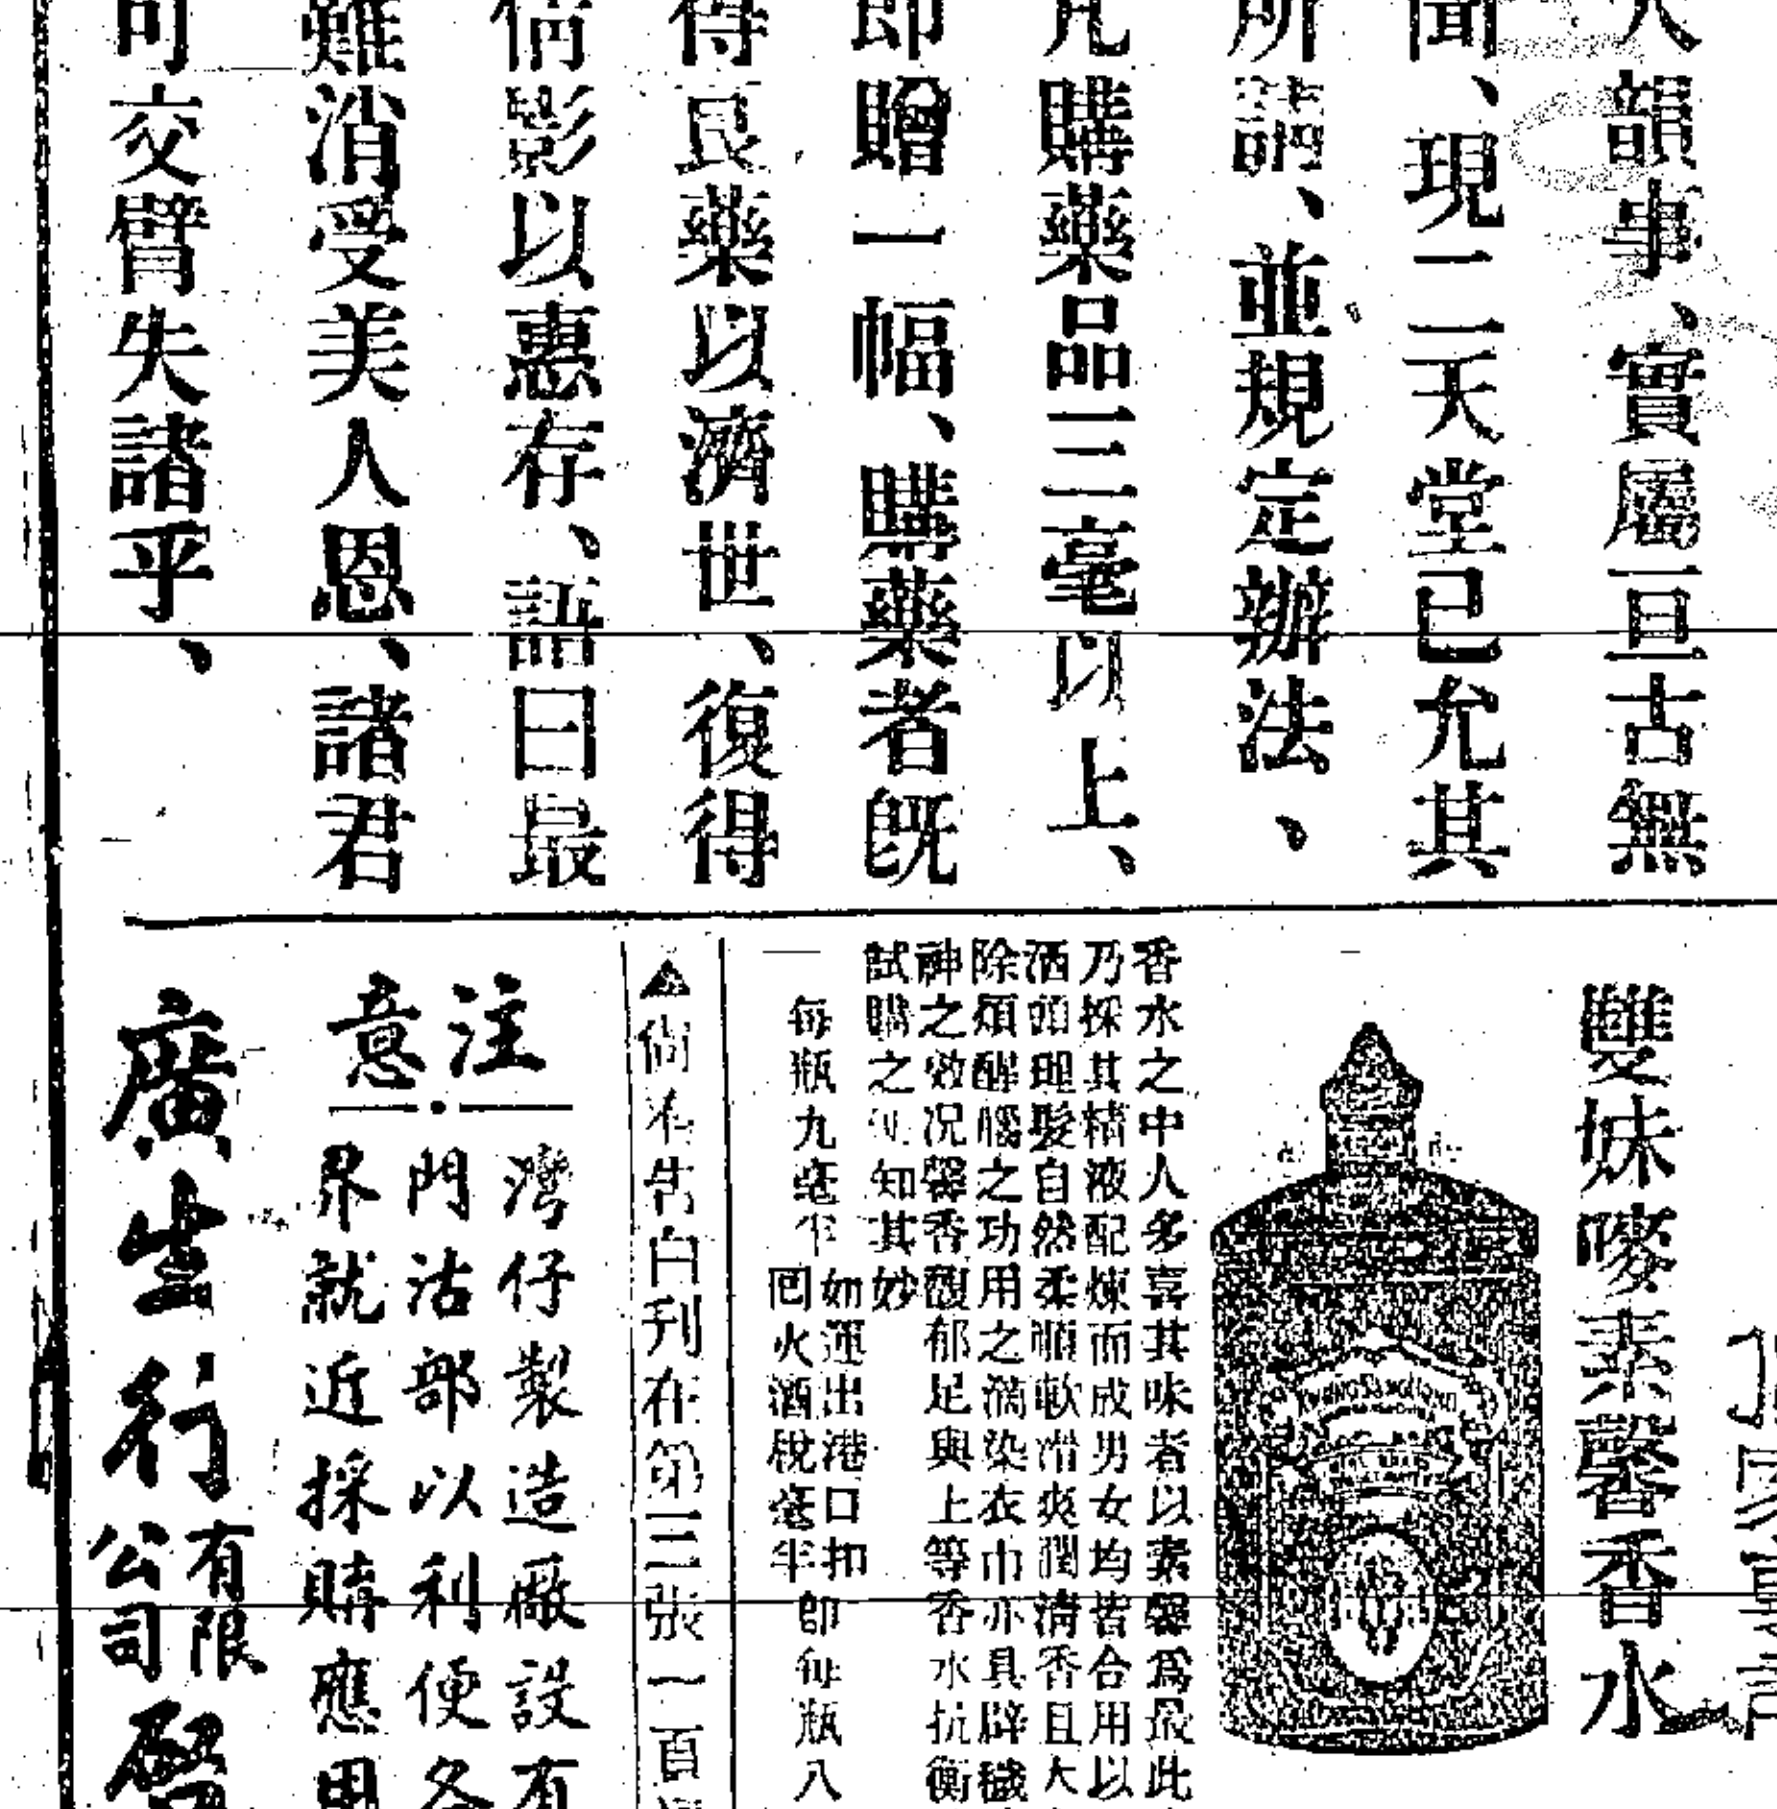 人韻事、實屬亘古無
聞、現二天堂已允其
所請、並規定辦法、
凡購藥品三毫以上、
即贈一幅、購藥者旣
得良藥以濟世、復得
倩影以惠存、語曰最
難消受美人恩、諸君
可交臂失諸乎、
雙妹嘜素馨香水
香水之中人多喜其味者以素馨爲最此
乃採其精液配煉而成男女均皆合用以
洒頭理髮自然柔順軟滑爽潤清香且大
除煩醒腦之功用之滴染衣巾亦具辟穢
神之效况馨香馥郁足與上等香水抗衡
試購之知其妙
每瓶九毫半
如運出港口扣
回火酒稅毫半
即每瓶八
▲尙有告白刊在第三張一百
注意
灣仔製造廠設有
門沽部以利便各
界就近採購應用
廣生行有限公司啓